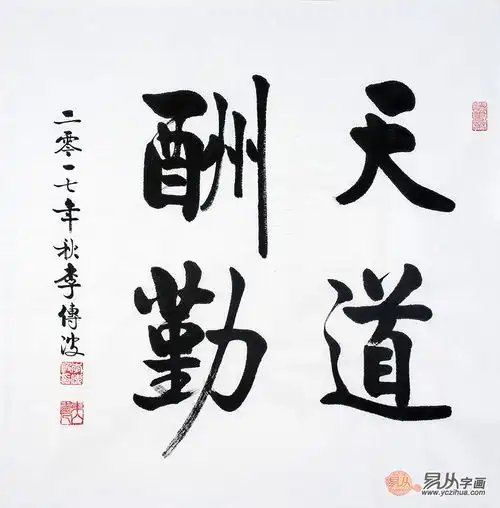 天道
酬勤
二零一七年秋李傳波
易从字画
www.yczihua.com